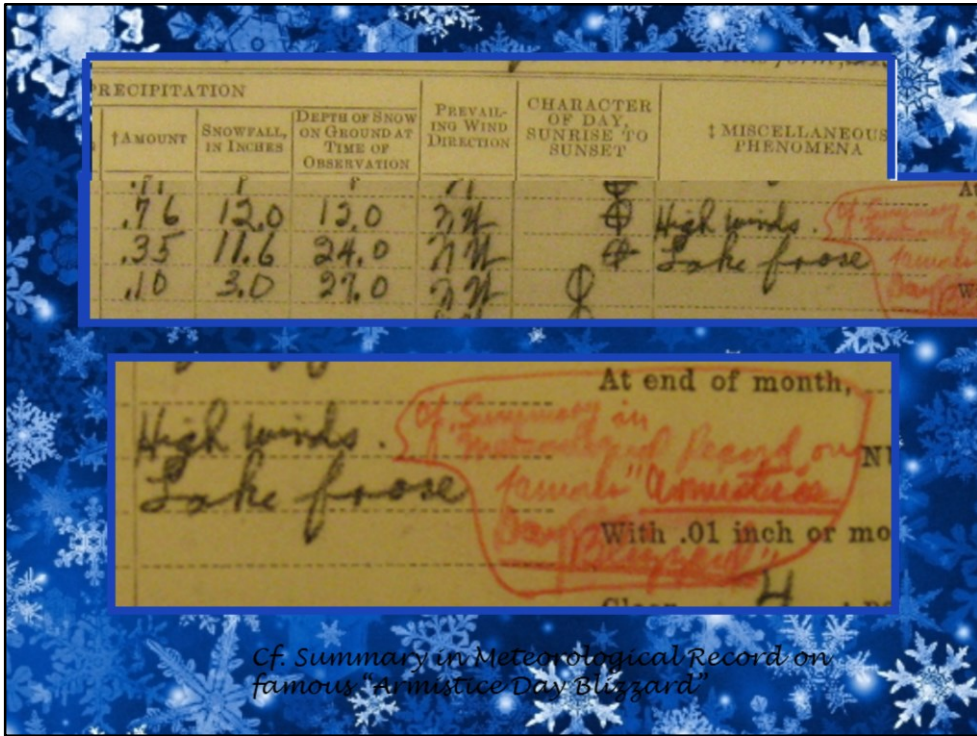 PRECIPITATION
†AMOUNT
SNOWFALL, IN INCHES
DEPTH OF SNOW ON GROUND AT TIME OF OBSERVATION
PREVAIL-ING WIND DIRECTION
CHARACTER OF DAY, SUNRISE TO SUNSET
‡ MISCELLANEOUS PHENOMENA
.76 12.0 12.0 NW High winds.
.35 11.6 24.0 NW Lake froze
.10 3.0 27.0 NW
At end of month,
High winds.
Lake froze
Cf. Summary in
Meteorological Record on
famous "Armistice
Day Blizzard"
With .01 inch or mo
4
Cf. Summary in Meteorological Record on
famous "Armistice Day Blizzard"